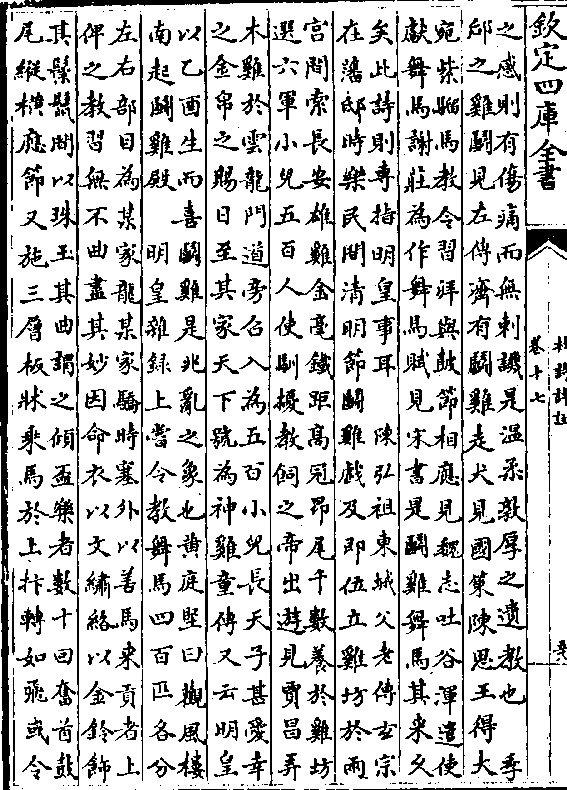 欽定四庫全書
杜詩詳註
卷十七
之感則有傷痛而無刺譏是温柔敦厚之遺教也 季
郈之雞鬬見左傳齊有鬬雞走犬見國策陳思王得大
宛紫騮馬教令習拜與鼓節相應見魏志吐谷渾遣使
獻舞馬謝莊為作舞馬賦見宋書是鬬雞舞馬其來久
矣此詩則專指明皇事耳 陳弘祖東城父老傳玄宗
在藩邸時樂民間清明節鬬雞戲及即位立雞坊於兩
宫間索長安雄雞金毫鐵距高冠昂尾千數養於雞坊
選六軍小兒五百人使馴擾教飼之帝出遊見賈昌弄
木雞於雲龍門道旁召入為五百小兒長天子甚愛幸
之金帛之賜日至其家天下號為神雞童傳又云明皇
以乙酉生而喜鬬雞是兆亂之象也黄庭堅曰觀風樓
南起鬬雞殿 明皇雜錄上嘗令教舞馬四百匹各分
左右部目為某家龍某家驕時塞外以善馬來貢者上
俾之教習無不曲盡其妙因命衣以文繡絡以金鈴飾
其鬃鬛間以珠玉其曲謂之傾盃樂者數十回奮首鼓
尾縱橫應節又施三層板牀乘馬於上抃轉如飛或令